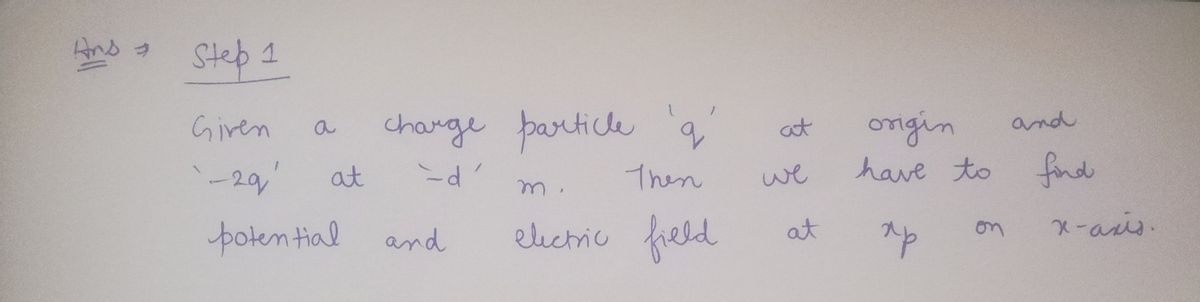 Ans ⇒ Step 1
Given a charge particle 'q' at origin and
'-2q' at '-d' m. Then we have to find
potential and electric field at xp on x-axis.